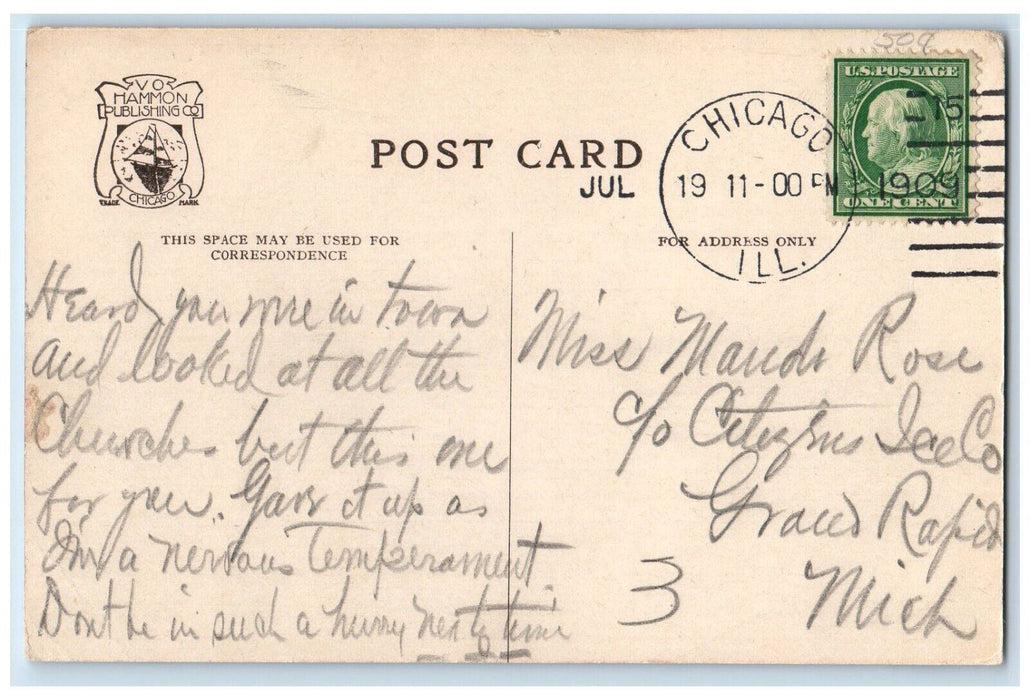 509
V O
HAMMON
PUBLISHING CO
CHICAGO
TRADE MARK
POST CARD
CHICAGO
JUL 19 11-00 PM
ILL.
U.S. POSTAGE
15
1909
ONE CENT
THIS SPACE MAY BE USED FOR
CORRESPONDENCE
FOR ADDRESS ONLY
Heard you were in town
and looked at all the
Churches but this one
for you. Gave it up as
I'm a nervous temperament
Dont be in such a hurry next time
Miss Maude Rose
c/o Citizens Ice Co
Grand Rapids
Mich
3